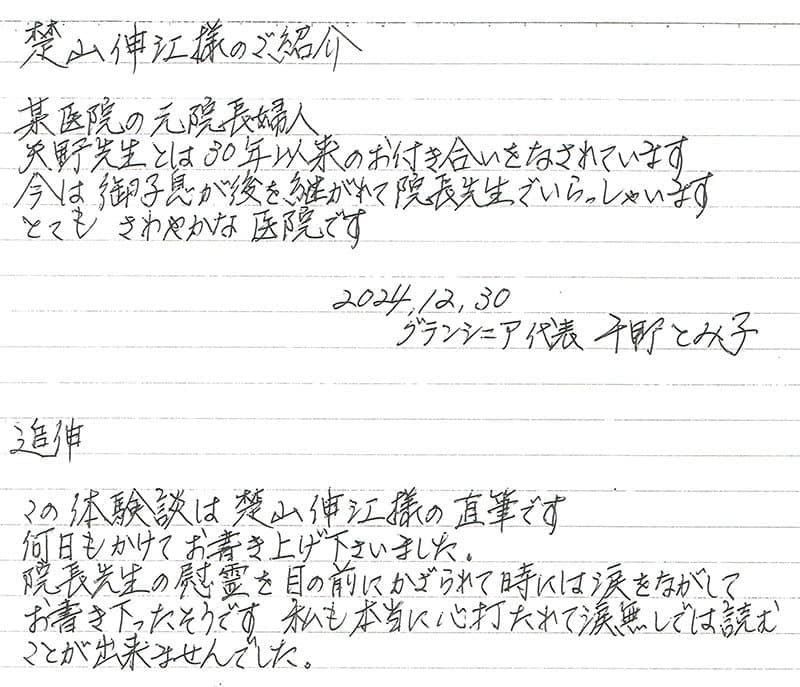 楚山伸江様のご紹介
某医院の元院長婦人
矢野先生とは30年以来のお付き合いをなされています
今は御子息が後を継がれて院長先生でいらっしゃいます
とても さわやかな医院です
2024,12,30
グランシニア代表 干野とみ子
追伸
この体験談は楚山伸江様の直筆です
何日もかけてお書き上げ下さいました。
院長先生の慰霊を目の前にかざられて時には涙をながして
お書き下ったそうです 私も本当に心打たれて涙無しでは読む
ことが出来ませんでした。